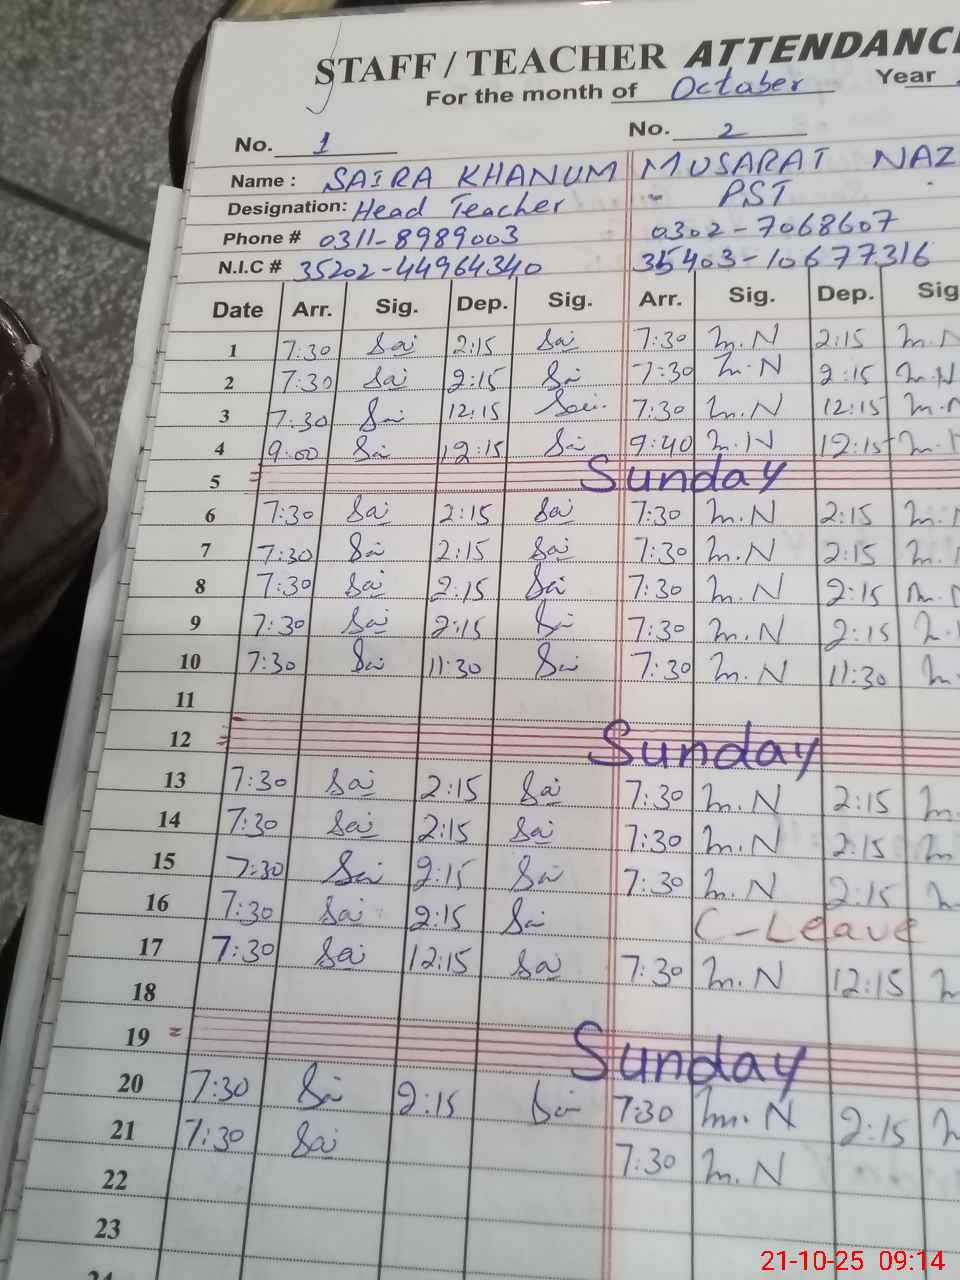 STAFF / TEACHER ATTENDANC
For the month of October Year
No. 1 No. 2
Name : SAIRA KHANUM MUSARAT NAZ
Designation: Head Teacher PST
Phone # 0311-8989003 0302-7068607
N.I.C # 35202-44964340 35403-10677316
Date Arr. Sig. Dep. Sig. Arr. Sig. Dep. Sig
1 7:30 Sai 2:15 Sai 7:30 M.N 2:15 M.N
2 7:30 Sai 2:15 Sai 7:30 M.N 2:15 M.N
3 7:30 Sai 12:15 Sai 7:30 M.N 12:15 M.N
4 9:00 Sai 12:15 Sai 9:40 M.N 12:15 M.N
5 Sunday
6 7:30 Sai 2:15 Sai 7:30 M.N 2:15 M.
7 7:30 Sai 2:15 Sai 7:30 M.N 2:15 M.
8 7:30 Sai 2:15 Sai 7:30 M.N 2:15 M.
9 7:30 Sai 2:15 Sai 7:30 M.N 2:15 M.
10 7:30 Sai 11:30 Sai 7:30 M.N 11:30 M.
11
12 Sunday
13 7:30 Sai 2:15 Sai 7:30 M.N 2:15 M.
14 7:30 Sai 2:15 Sai 7:30 M.N 2:15 M
15 7:30 Sai 2:15 Sai 7:30 M.N 2:15 M
16 7:30 Sai 2:15 Sai C-Leave
17 7:30 Sai 12:15 Sai 7:30 M.N 12:15 M
18
19 Sunday
20 7:30 Sai 2:15 Sai 7:30 M.N 2:15 M
21 7:30 Sai 7:30 M.N
22
23
24
21-10-25 09:14